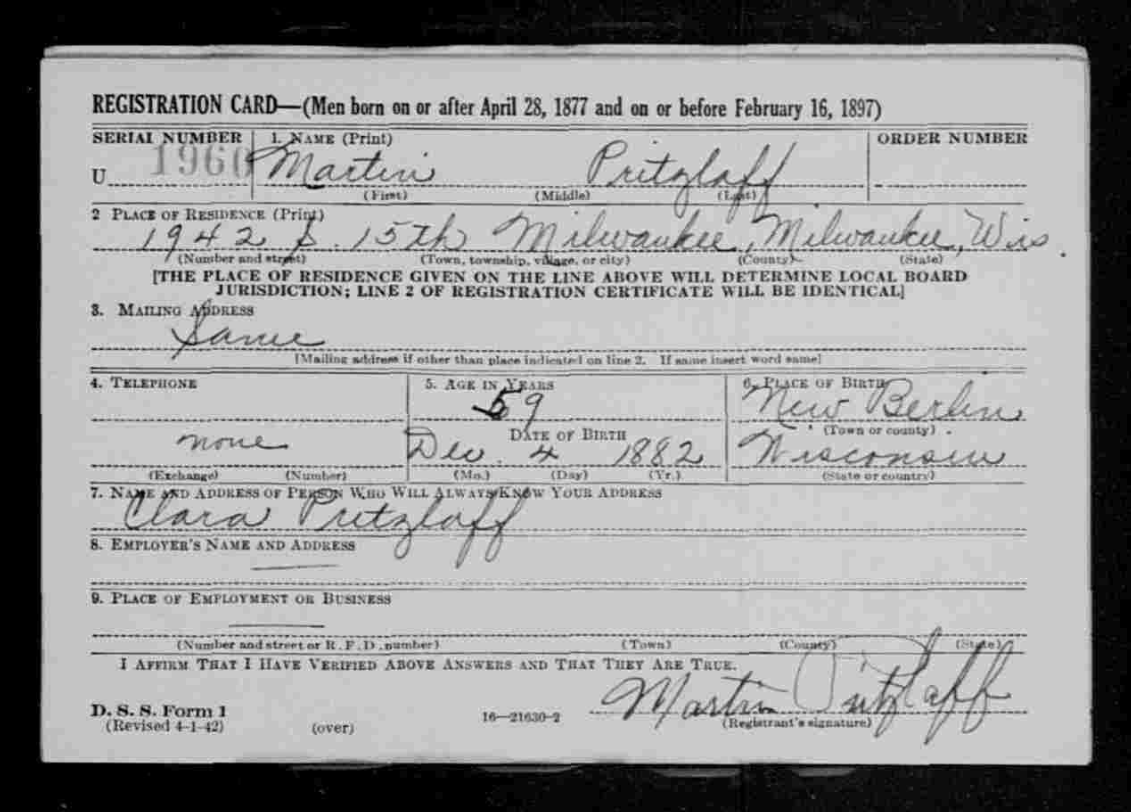 REGISTRATION CARD—(Men born on or after April 28, 1877 and on or before February 16, 1897)
SERIAL NUMBER 1. NAME (Print) ORDER NUMBER
U 1960 Martin Pritzlaff
(First) (Middle) (Last)
2 PLACE OF RESIDENCE (Print)
1942 S. 15th Milwaukee, Milwaukee, Wis
(Number and street) (Town, township, village, or city) (County) (State)
[THE PLACE OF RESIDENCE GIVEN ON THE LINE ABOVE WILL DETERMINE LOCAL BOARD
JURISDICTION; LINE 2 OF REGISTRATION CERTIFICATE WILL BE IDENTICAL]
3. MAILING ADDRESS
Same
[Mailing address if other than place indicated on line 2. If same insert word same]
4. TELEPHONE 5. AGE IN YEARS 6. PLACE OF BIRTH
59 New Berlin
DATE OF BIRTH (Town or county)
none Dec. 4 1882 Wisconsin
(Exchange) (Number) (Mo.) (Day) (Yr.) (State or country)
7. NAME AND ADDRESS OF PERSON WHO WILL ALWAYS KNOW YOUR ADDRESS
Clara Pritzlaff
8. EMPLOYER'S NAME AND ADDRESS
9. PLACE OF EMPLOYMENT OR BUSINESS
(Number and street or R. F. D. number) (Town) (County) (State)
I AFFIRM THAT I HAVE VERIFIED ABOVE ANSWERS AND THAT THEY ARE TRUE.
Martin Pritzlaff
D. S. S. Form 1
(Revised 4-1-42) (over) 16—21630-2 (Registrant's signature)